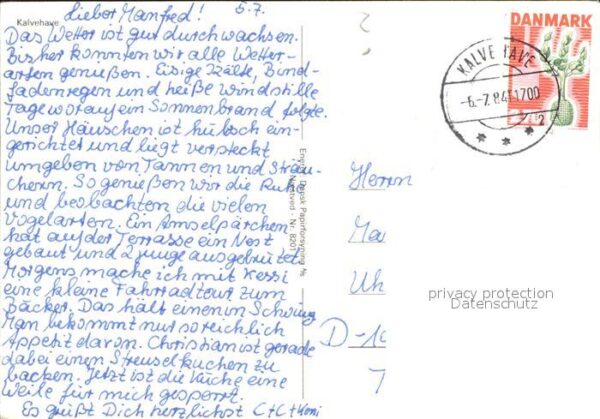 Kalvehave
Lieber Manfred! 5.7.
Das Wetter ist gut durchwachsen.
Bisher konnten wir alle Wetter-
arten genußen. Eisige Kälte, Bind-
fadenregen und heiße windstille
Tage worauf ein Sonnenbrand folgte.
Unser Häuschen ist hübsch ein-
gerichtet und liegt versteckt
umgeben von Tannen und Sträu-
chern. So genießen wir die Ruhe
und beobachten die vielen
Vogelarten. Ein Amselpärchen
hat auf der Terrasse ein Nest
gebaut und 2 Junge ausgebrütet.
Morgens mache ich mit Kessi
eine kleine Fahrradtour zum
Bäcker. Das hält einen in Schwung
Man bekommt nur so reichlich
Appetit davon. Christian ist gerade
dabei einen Streuselkuchen zu
backen. Jetzt ist die Küche eine
Weile für mich gesperrt.
Es grüßt Dich herzlichst C+C+
Dansk Papirforsyning A/S
Næstved - Nr. 8201
DANMARK
KALVEHAVE
-6.-7.84 1700
2
Herrn
Ma
Uh
D-1
7
privacy protection
Datenschutz